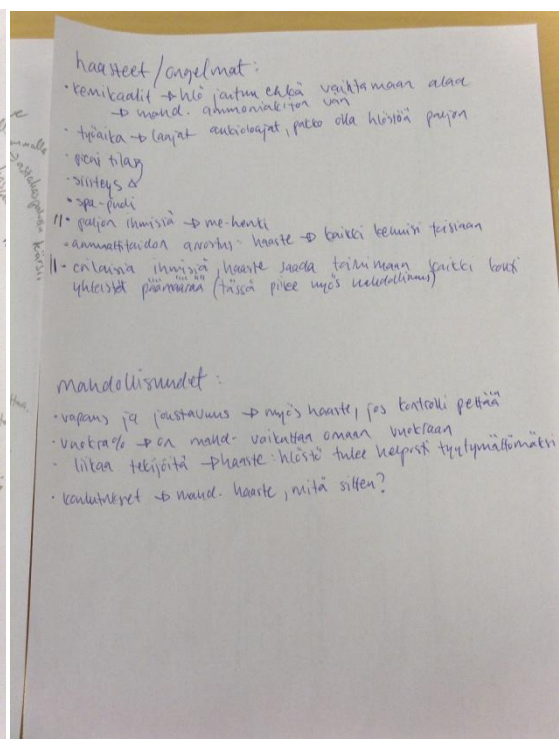 haasteet/ongelmat:
· kemikaalit → hlö joutuu ehkä vaihtamaan alaa
→ mahd. ammoniakiton väri
· työaika → laajat aukioloajat, pakko olla hlöstöä paljon
· pieni tila
· siisteys
· spa-
· paljon ihmisiä → me-henki
· ammattitaidon arvostus: haaste → kaikki kehuisi toisiaan
· erilaisia ihmisiä, haaste saada toimimaan kaikki kohti
yhteistä päämäärää (tässä piilee myös mahdollisuus)
mahdollisuudet:
· vapaus ja joustavuus → myös haaste, jos kontrolli pettää
· vuokra% → on mahd. vaikuttaa omaan vuokraan
· liikaa tekijöitä → haaste: hlöstö tulee helposti tyytymättömäksi
· koulutukset → mahd. haaste, mitä sitten?